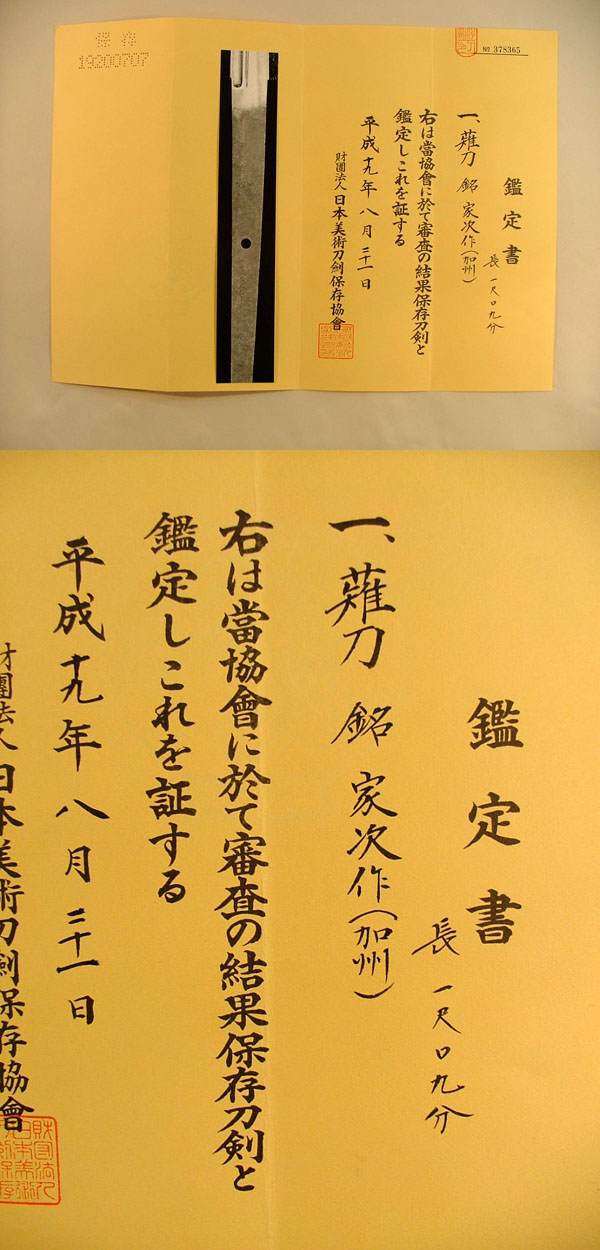 保存
19200707
№ 378365
鑑定書
長 一尺〇九分
一、薙刀 銘 家次作(加州)
右は當協會に於て審査の結果保存刀剣と
鑑定しこれを証する
平成十九年八月三十一日
財團法人日本美術刀剣保存協會
鑑定書
長 一尺〇九分
一、薙刀 銘 家次作(加州)
右は當協會に於て審査の結果保存刀剣と
鑑定しこれを証する
平成十九年八月三十一日
財團法人日本美術刀剣保存協會